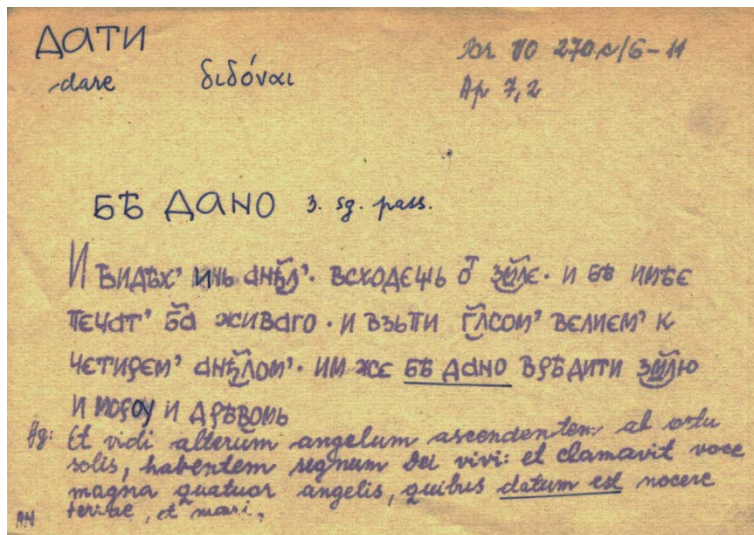 ДАТИ
dare διδόναι
Br VO 270c/6-11
Ap 7,2
БѢ ДАНО 3. sg. pass.
И ВИДѢХ' ИНЬ АНЂЛ'· ВСХОДЕЩЬ ОТ ЗМЛЕ· И БѢ ИМѢЕ
ПЕЧАТ' БА ЖИВАГО· И ВЗЬПИ ГЛСОМ' ВЕЛИЕМ' К
ЧЕТИРЕМ' АНЂЛОМ'· ИМ ЖЕ БѢ ДАНО ВРѢДИТИ ЗМЛЮ
И МОРОУ И ДРѢВОМЬ
Vg: Et vidi alterum angelum ascendentem ab ortu
solis, habentem signum Dei vivi: et clamavit voce
magna quatuor angelis, quibus datum est nocere
terrae, et mari,